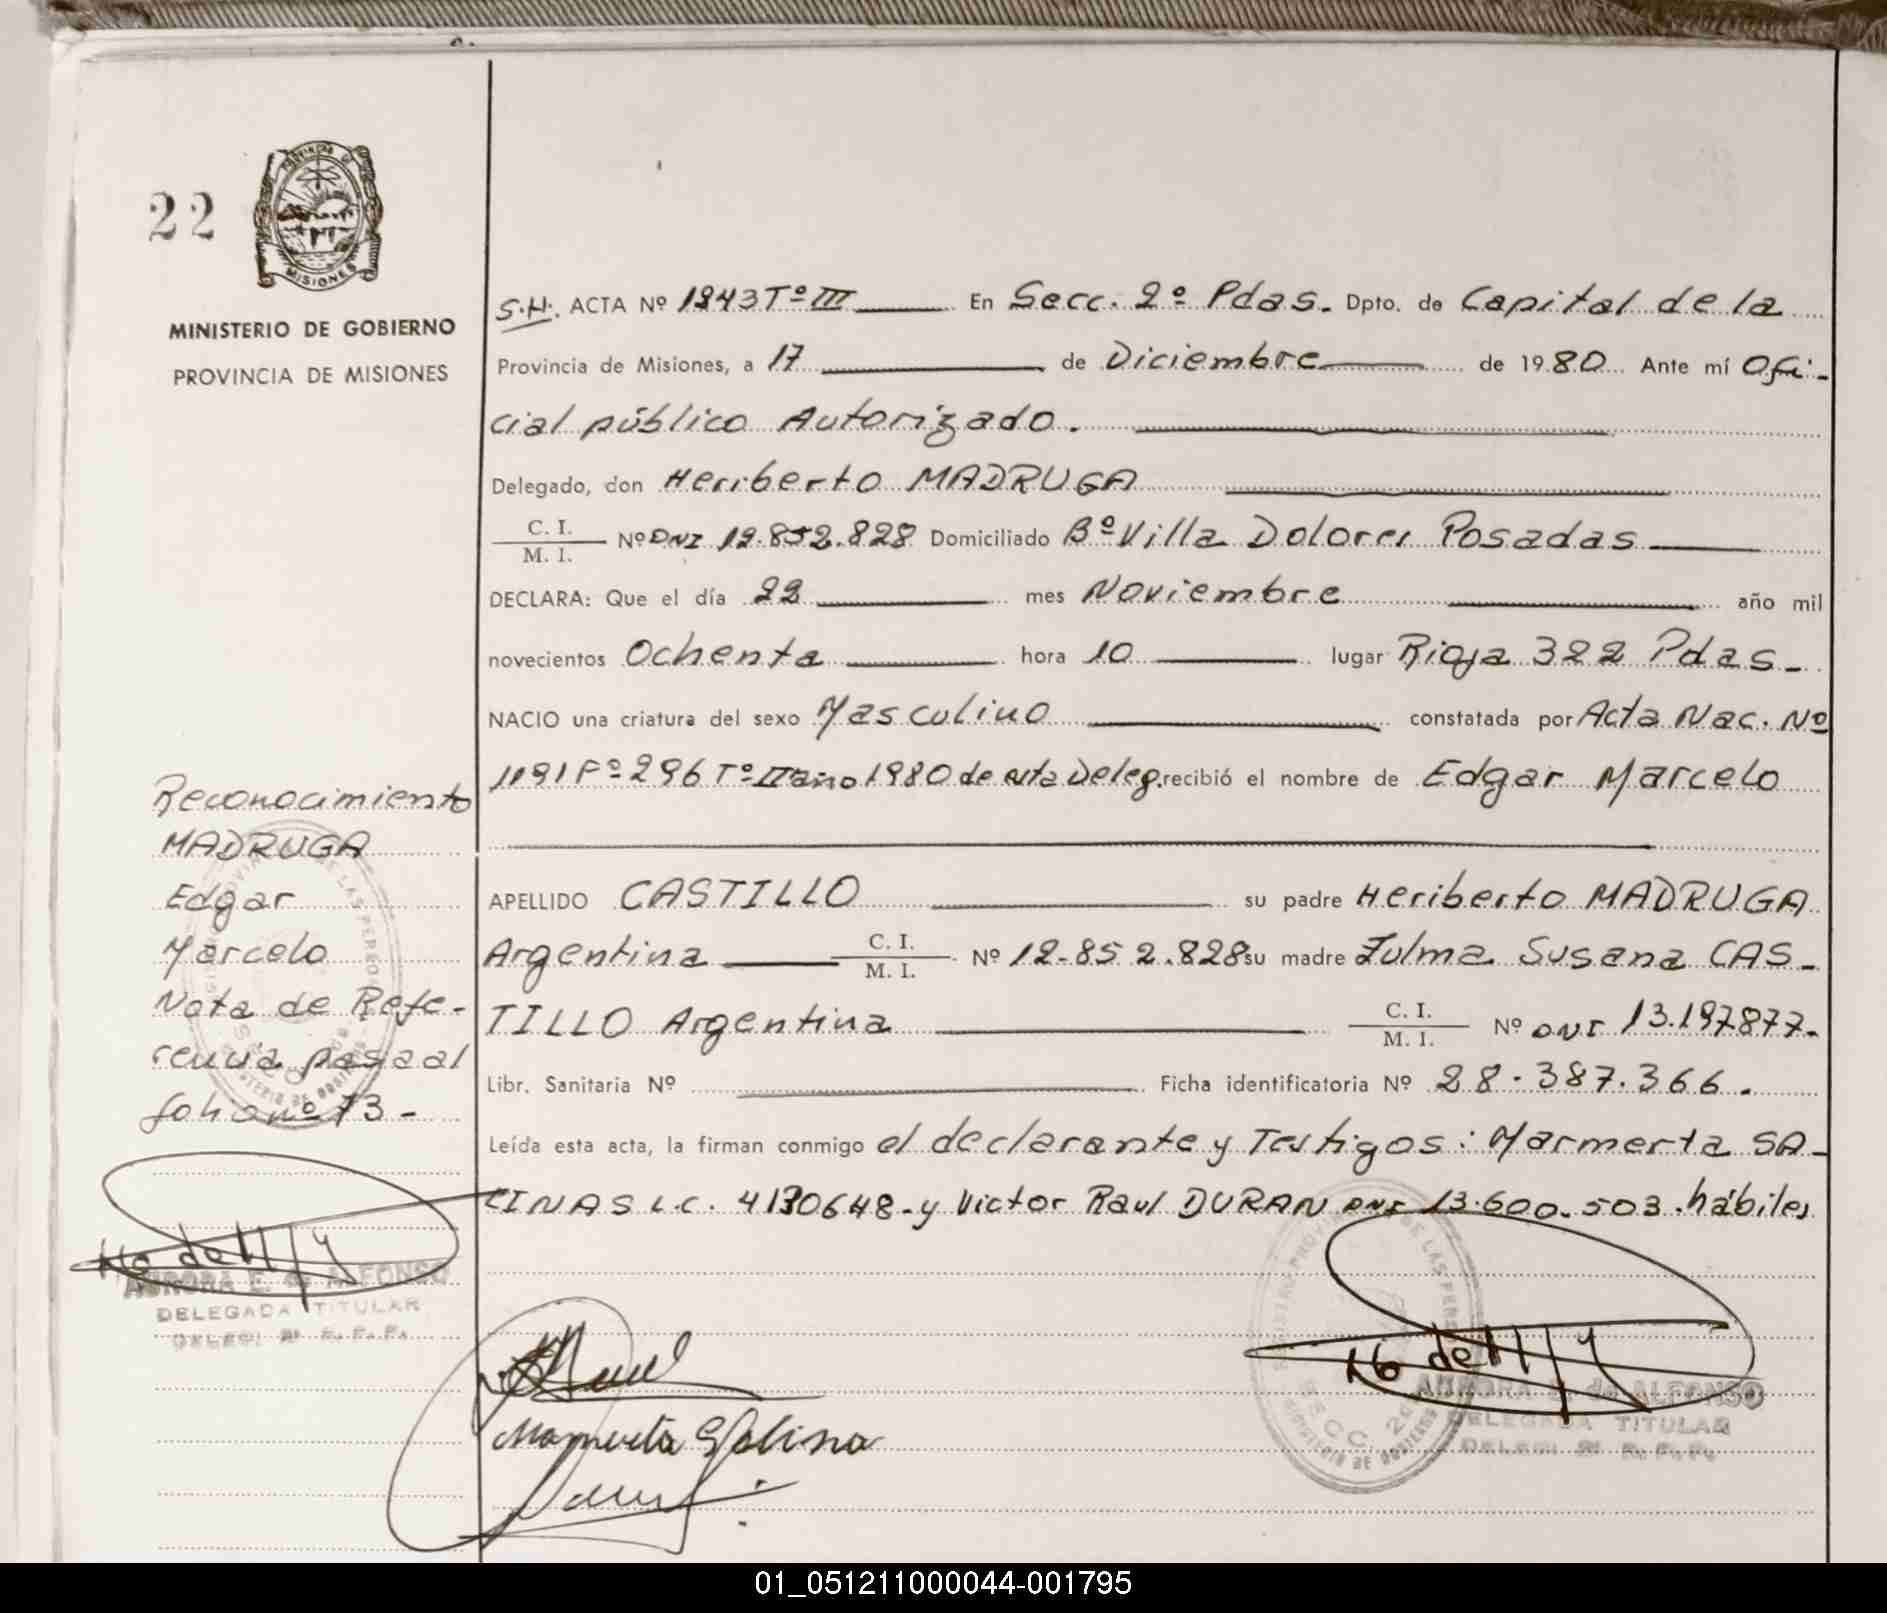 22
PROVINCIA DE
MISIONES
MINISTERIO DE GOBIERNO
PROVINCIA DE MISIONES
S.H. ACTA Nº 1843 Tº III En Secc. 2º Pdas. Dpto. de Capital de la
Provincia de Misiones, a 17 de Diciembre de 1980 Ante mí Ofi-
cial público Autorizado.
Delegado, don Heriberto MADRUGA
C. I.
M. I.
Nº DNI 12.852.828 Domiciliado Bº Villa Dolores Posadas
DECLARA: Que el día 22 mes Noviembre año mil
novecientos Ochenta hora 10 lugar Rioja 322 Pdas-
NACIO una criatura del sexo Masculino constatada por Acta Nac. Nº
1191 Fº 296 Tº II año 1980 de esta Deleg. recibió el nombre de Edgar Marcelo
APELLIDO CASTILLO su padre Heriberto MADRUGA
Argentina C. I.
M. I. Nº 12.852.828 su madre Zulma Susana CAS-
TILLO Argentina C. I.
M. I. Nº DNI 13.197877-
Libr. Sanitaria Nº Ficha identificatoria Nº 28.387.366.
Leída esta acta, la firman conmigo el declarante y Testigos: Marmerta SA-
LINAS L.C. 4130648-y Victor Raul DURAN DNI 13.600.503. hábiles
Reconocimiento
MADRUGA
Edgar
Marcelo
Nota de Refe-
rencia pasa al
folio nº 73-
AURORA E. de ALFONSO
DELEGADA TITULAR
Marmerta Salina
AURORA E. de ALFONSO
DELEGADA TITULAR
01_051211000044-001795